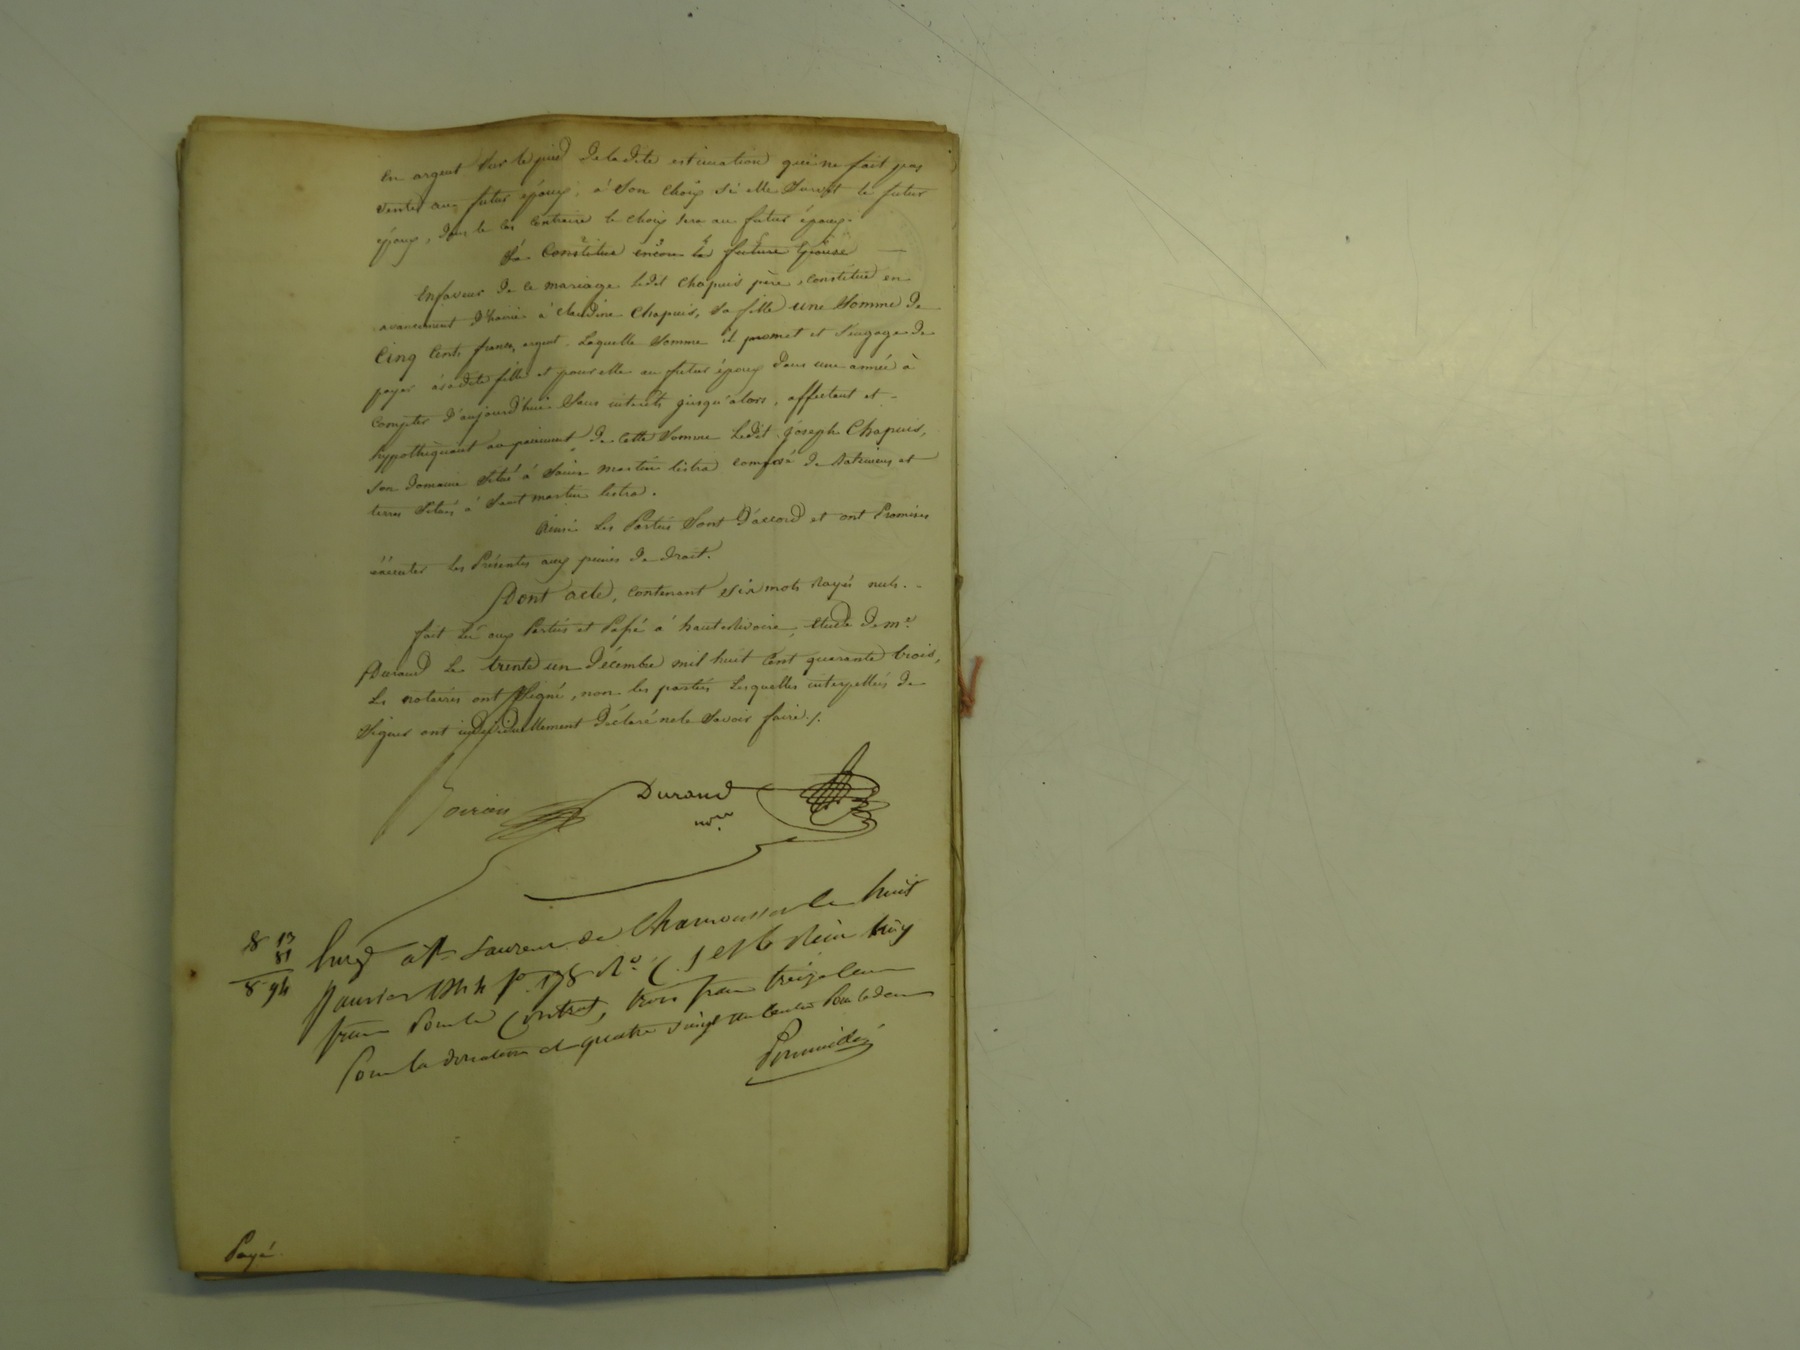 en argent sur le pied de ladite estimation qui ne fait pas
vente au futur époux, à son choix si elle survit le futur
époux, dans le cas contraire le choix sera au futur époux.
Se constitue encore la future épouse —
En faveur de ce mariage ledit Chapuis père, constitue en
avancement d'hoirie à Claudine Chapuis, sa fille une somme de
Cinq Cents francs, argent. Laquelle somme il promet et s'engage de
payer à sadite fille et pour elle au futur époux dans une année à
compter d'aujourd'hui sans intérêts jusqu'alors, affectant et -
hypothéquant au paiement de cette somme ledit Joseph Chapuis,
son domaine situé à Saint martin lestra composé de batimens et
terres situés à Saint martin lestra.
Ainsi les Parties sont d'accord et ont Promises
éxécuter les Présentes aux peines de droit.
Dont acte, contenant six mots rayés nuls. -
fait lu aux Parties et Passé à hauterivoire, étude de me.
Durand le trente un décembre mil huit cent quarante trois,
les notaires ont signé, non les parties lesquelles interpellées de
signer ont individuellement déclaré ne le savoir faire./.
Durand
nore
8 13
81
8 94
Enregé à St Laurent de Chamousset le huit
Janvier 1844 fo. 178 Ro. C. 5 et 6 reçu cinq
francs Pour le Contrat, trois francs treize centimes
Pour la donation et quatre vingt un centimes Pour le décime
Payé.